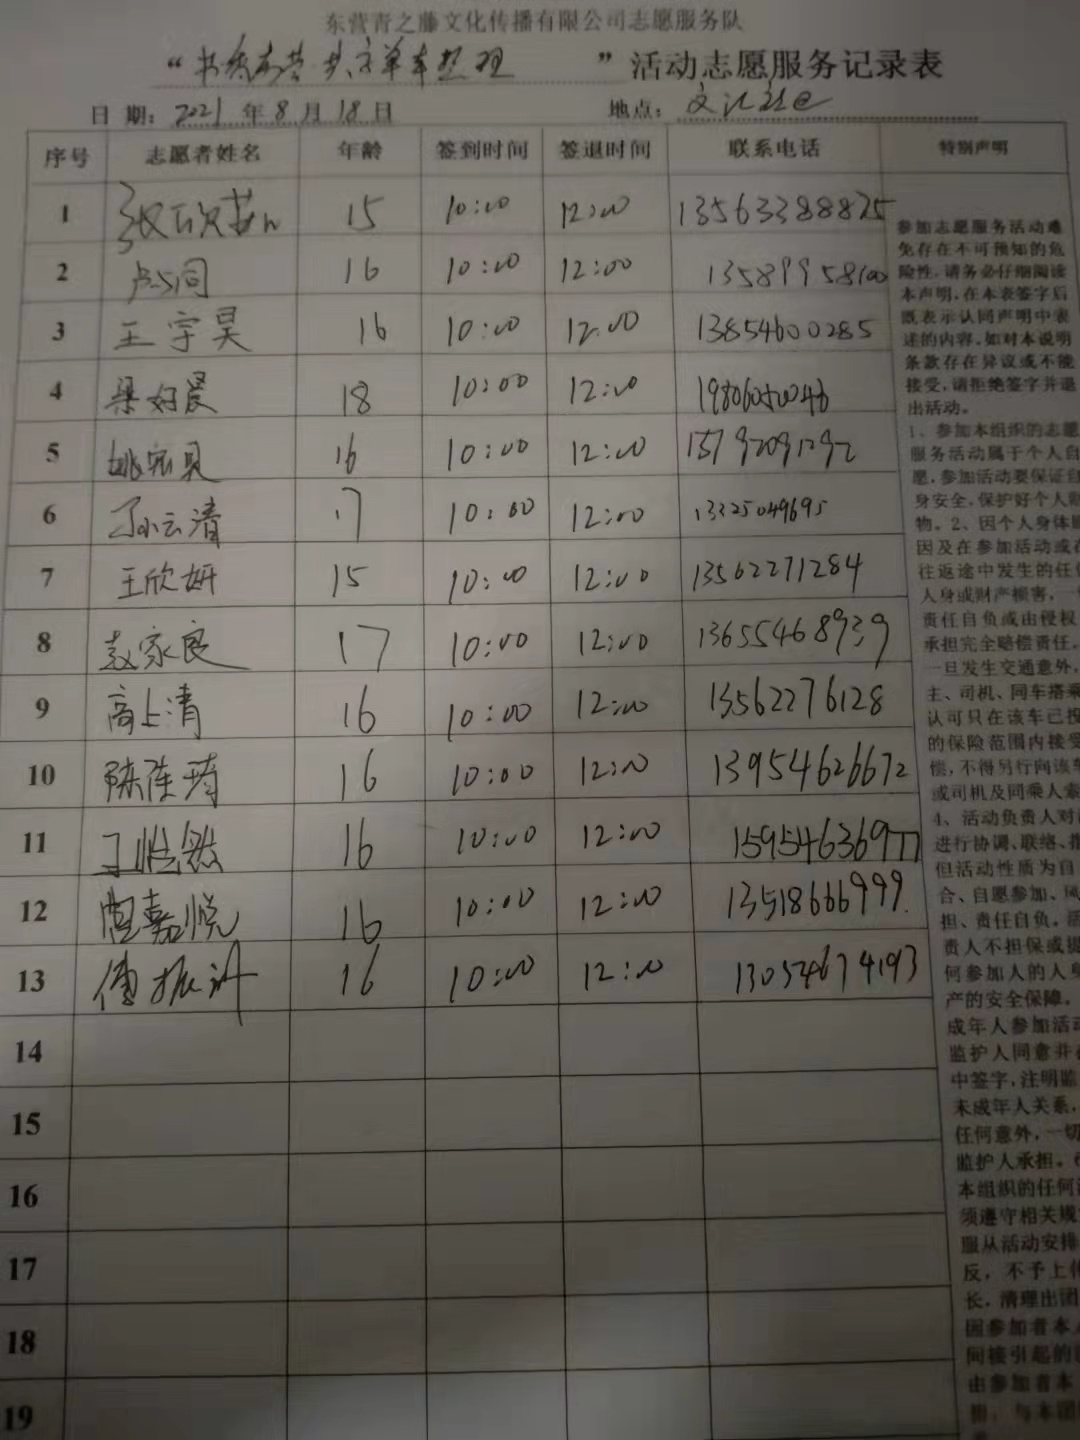 东营青之藤文化传播有限公司志愿服务队
“ 共享单车整理 ”活动志愿服务记录表
日期: 2021 年 8 月 18 日 地点:
序号 志愿者姓名 年龄 签到时间 签退时间 联系电话 特别声明
1 15 10:00 12:00 13563388825
2 16 10:00 12:00 13589958100
3 王宇昊 16 10:00 12:00 13854600285
4 梁好晨 18 10:00 12:00
5 姚宛贝 16 10:00 12:00
6 孙云清 17 10:00 12:00 13325049695
7 王欣妍 15 10:00 12:00 13562271284
8 赵家良 17 10:00 12:00 13655468939
9 高上清 16 10:00 12:00 13562276128
10 16 10:00 12:00 13954626672
11 16 10:00 12:00
12 嘉悦 16 10:00 12:00 13518666999
13 傅振 16 10:00 12:00 13054674193
14
15
16
17
18
19
参加志愿服务活动难
免存在不可预知的危
险性,请务必仔细阅读
本声明,在本表签字后
既表示认同声明中表
述的内容,如对本说明
条款存在异议或不能
接受,请拒绝签字并退
出活动。
1、参加本组织的志愿
服务活动属于个人自
愿,参加活动要保证自
身安全,保护好个人财
物。2、因个人身体原
因及在参加活动或在
往返途中发生的任何
人身或财产损害,一
责任自负或由侵权
承担完全赔偿责任,
一旦发生交通意外,
主、司机、同车搭乘
认可只在该车已投
的保险范围内接受
偿,不得另行向该车
或司机及同乘人索
4、活动负责人对
进行协调、联络、指
但活动性质为自
合、自愿参加、风
担、责任自负,活
责人不担保或提
何参加人的人身
产的安全保障。
成年人参加活动
监护人同意并
中签字,注明监
未成年人关系,
任何意外,一切
监护人承担。
本组织的任何
须遵守相关规
服从活动安排
反,不予上传
长,清理出团
因参加者本人
间接引起的
由参加者本
与本团